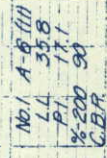 No.1 A-6 (11)
LL 35.8
P.I. 17.1
%-200 90
C.B.R.